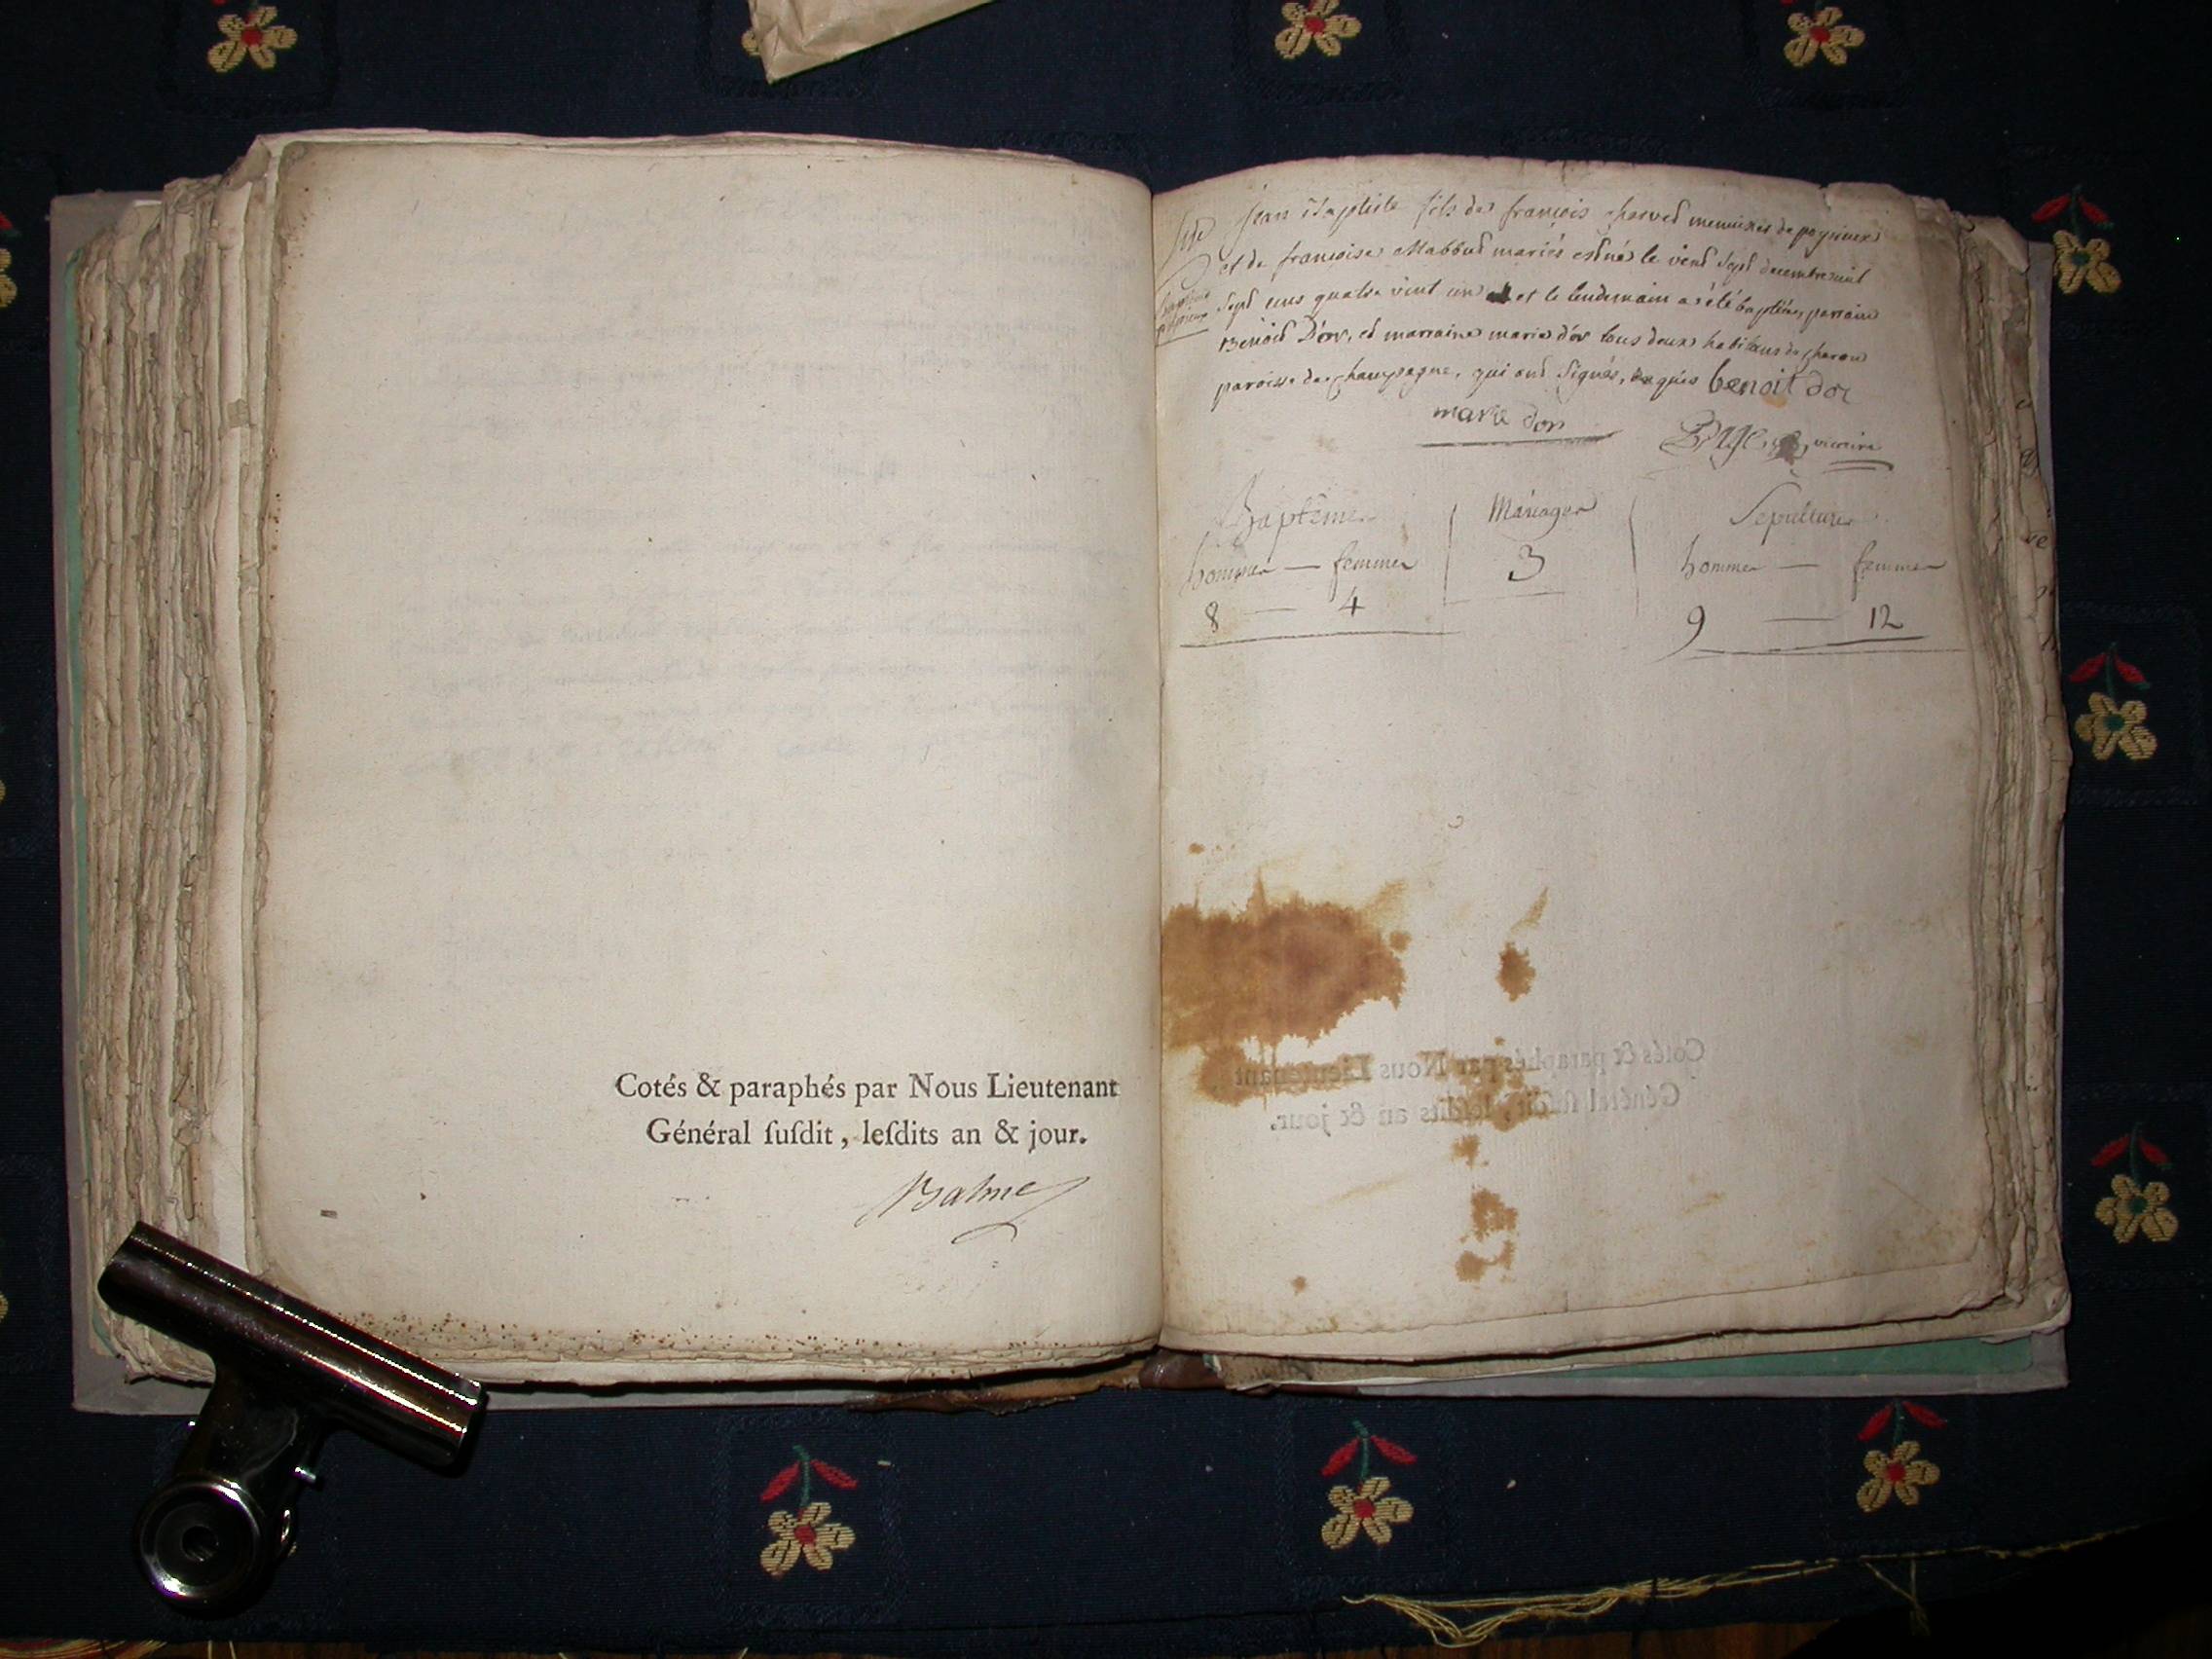 Cotés & paraphés par Nous Lieutenant
Général ſuſdit, leſdits an & jour.
Balme
Jean Baptiste fils de françois charvet menuisier de pognieux
et de francoise Mabboux mariés est né le vint sept decembre mil
sept cens quatre vint un et le lendemain a été baptisé, parrain
Benoit D'or, et marraine marie d'or tous deux habitans de
paroisse de champagne, qui ont signés, benoit dor
marie dor
vicaire
Baptêmes Mariages Sepultures
hommes — femmes 3 hommes — femmes
8 — 4 9 — 12